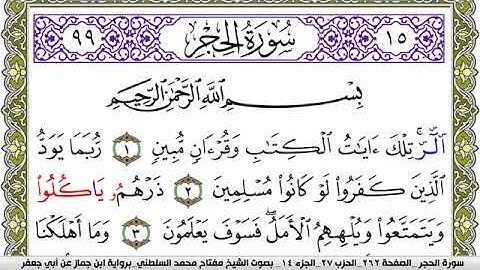 ٩٩ سُورَةُ الحِجْرِ ١٥
بِسْمِ اللَّهِ الرَّحْمَٰنِ الرَّحِيمِ
الٓرۚ تِلْكَ ءَايَٰتُ الْكِتَٰبِ وَقُرْءَانٍ مُّبِينٍ ١ رُّبَمَا يَوَدُّ
الَّذِينَ كَفَرُوا۟ لَوْ كَانُوا۟ مُسْلِمِينَ ٢ ذَرْهُمُۥ يَاكُلُوا۟
وَيَتَمَتَّعُوا۟ وَيُلْهِهِمُ الْأَمَلُۖ فَسَوْفَ يَعْلَمُونَ ٣ وَمَا أَهْلَكْنَا
سورة الحجر _الصفحة ٢٦٢_ الحزب ٢٧_ الجزء ١٤_ بصوت الشيخ مفتاح محمد السلطني_برواية ابن جماز عن أبي جعفر